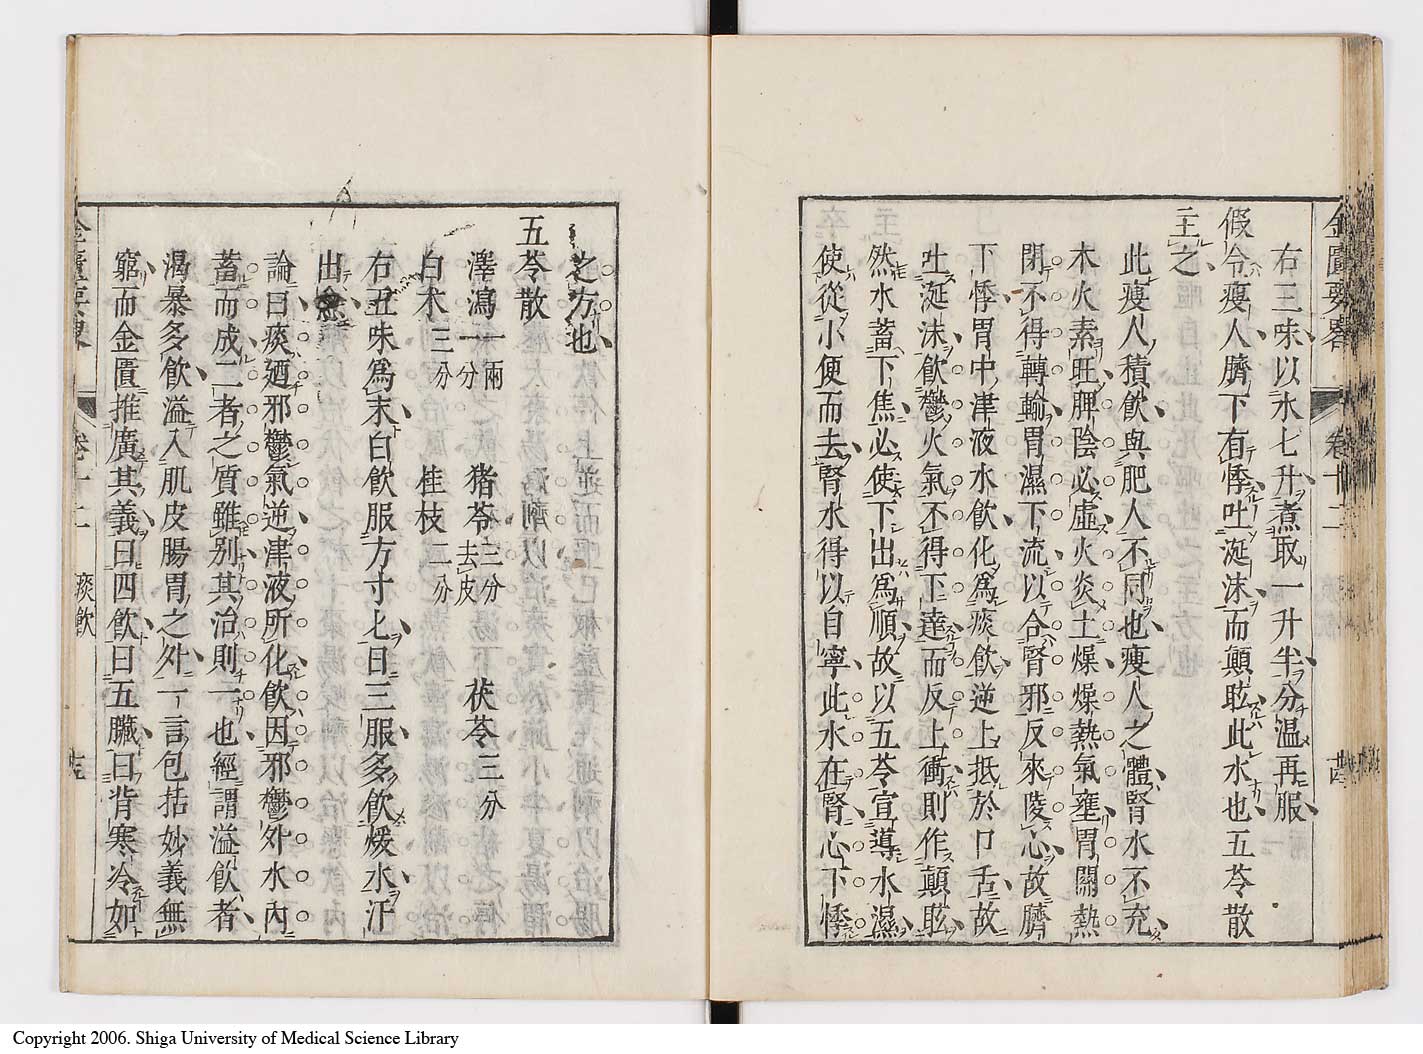 金匱要畧 卷十二
右三味以水七升煮取一升半分温再服
假令瘦人臍下有悸吐涎沫而顛眩此水也五苓散
主之
此瘦人積飲與肥人不同也瘦人之體腎水不充
木火素旺脾陰必虛火炎土燥燥熱氣壅胃關熱
閉不得轉輸胃濕下流以合腎邪反來陵心故臍
下悸胃中津液水飲化爲痰飲逆上抵於口舌故
吐涎沫飲鬱火氣不得下達而反上衝則作顛眩
然水蓄下焦必使下出爲順故以五苓宣導水濕
使從小便而去腎水得以自寧此水在腎心下悸
之方也
五苓散
澤瀉一兩一分 猪苓三分去皮 茯苓三分
白朮三分 桂枝二分
右五味爲末白飲服方寸匕日三服多飲煖水汗
出愈
論曰痰廼邪鬱氣逆津液所化飲因邪鬱外水內
蓄而成二者之質雖別其治則一也經謂溢飲者
渴暴多飲溢入肌皮腸胃之外一言包括妙義無
窮而金匱推廣其義曰四飲曰五臟曰背寒冷如
卷十二 痰飲
Copyright 2006. Shiga University of Medical Science Library